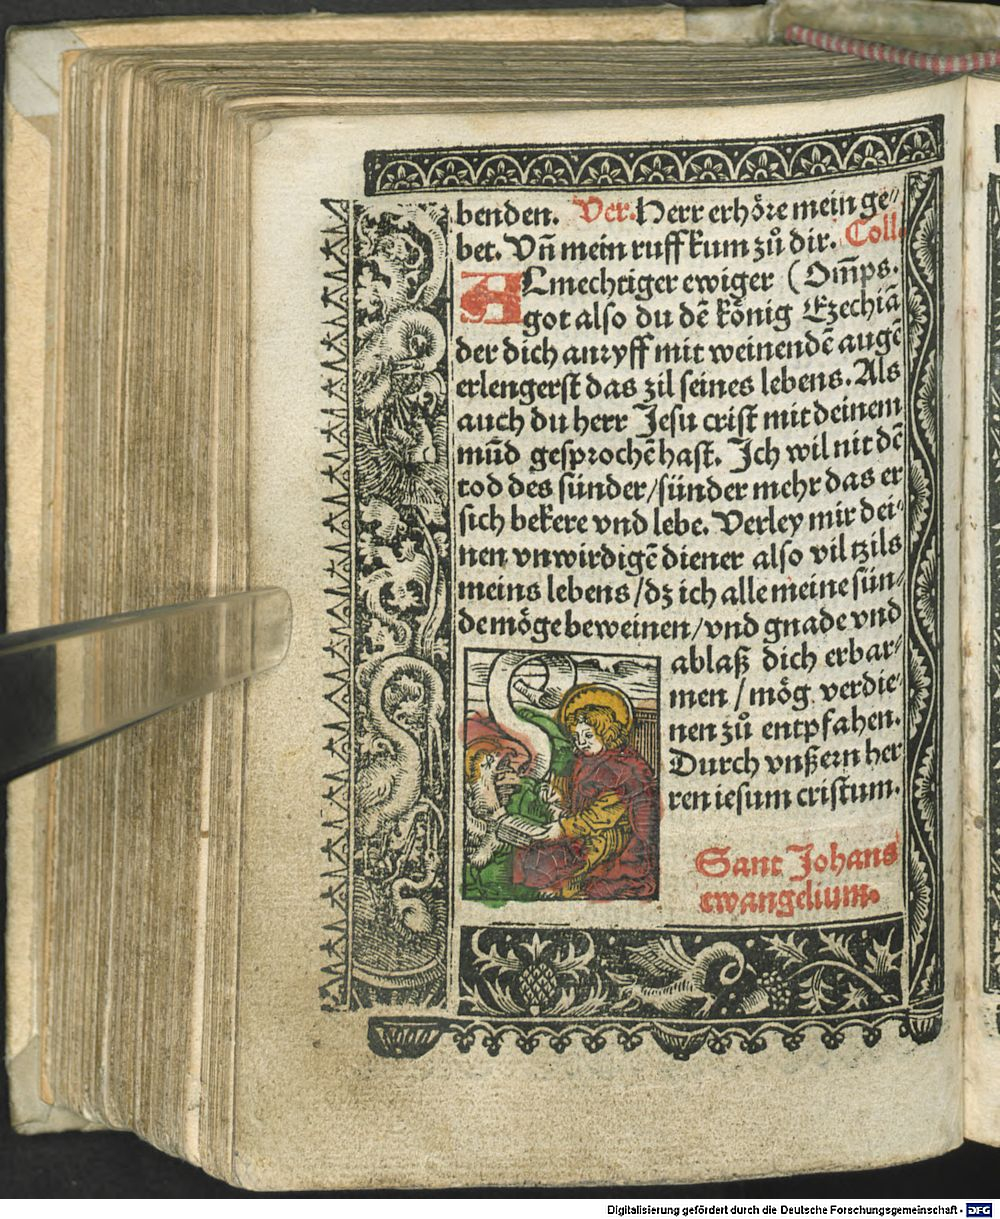 benden. Ver. Herr erhöre mein ge⸗
bet. Vn̄ mein ruff kum zů dir. Coll.
ALmechtiger ewiger (Om̄ps.
got also du dē könig Ezechiā
der dich anryff mit weinendē augē
erlengerst das zil seines lebens. Als
auch du herr Jesu crist mit deinem
mūd gesprochē hast. Ich wil nit dē
tod des sünder/sünder mehr das er
sich bekere vnd lebe. Verley mir dei⸗
nen vnwirdigē diener also vil tzils
meins lebens/dz ich alle meine sün⸗
de möge beweinen/vnd gnade vnd
ablaß dich erbar⸗
men/mög verdie⸗
nen zů entpfahen.
Durch vnßern her
ren iesum cristum.
Sant Johans
ewangelium.
Digitalisierung gefördert durch die Deutsche Forschungsgemeinschaft - DFG